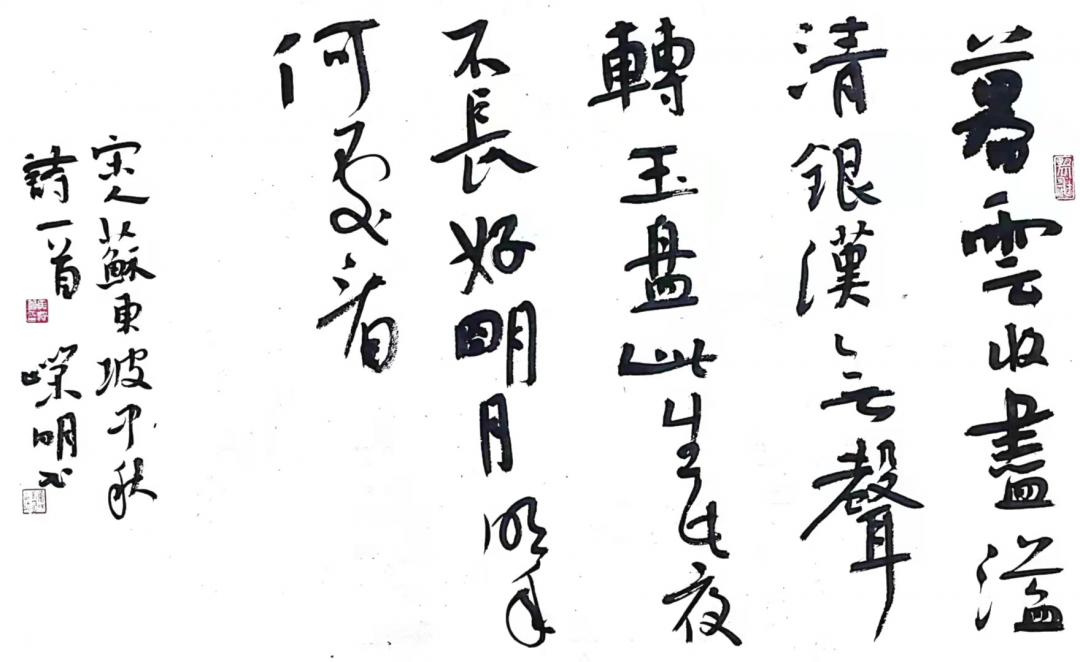 暮雲收盡溢
清銀漢無聲
轉玉盤此生此夜
不長好明月明年
何處看
宋人蘇東坡中秋
詩一首 明书